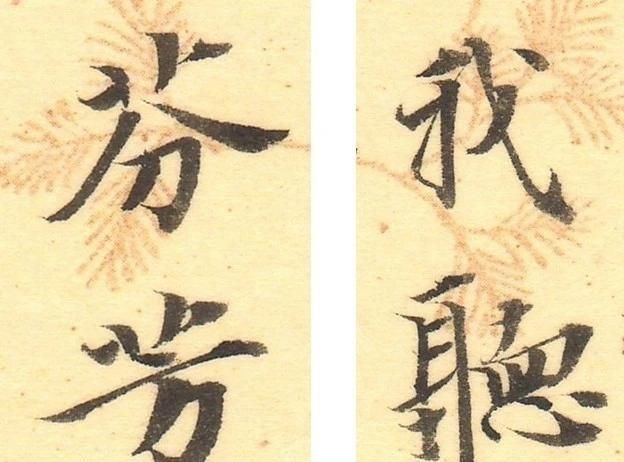 我聽
芬芳